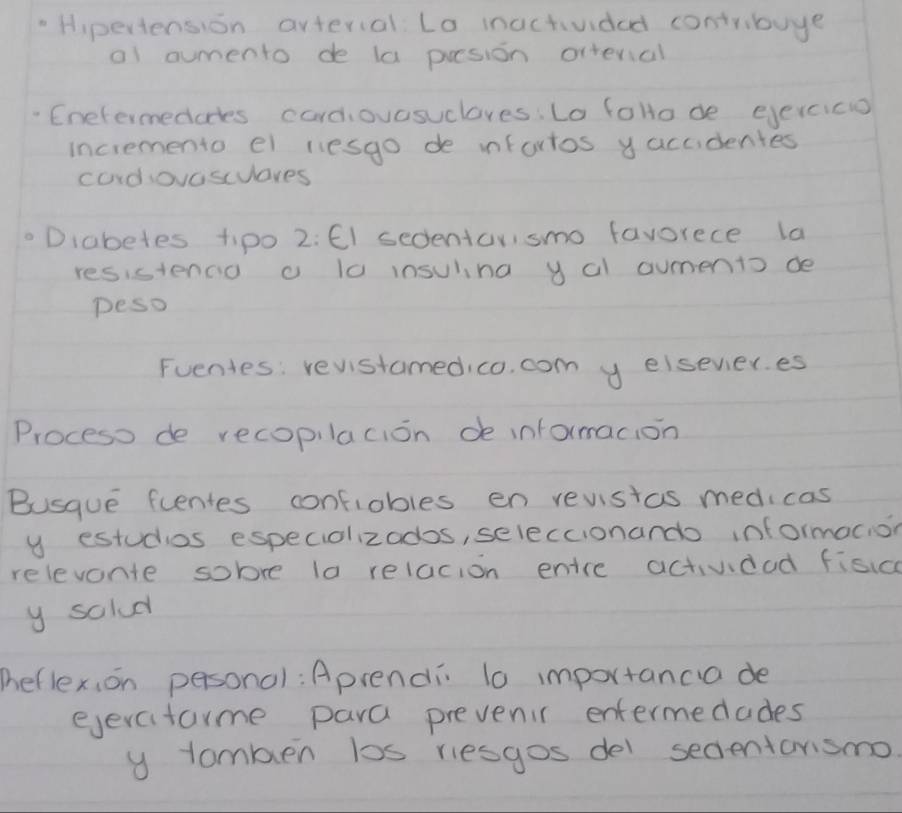 • Hipertensión arterial: La inactividad contribuye
al aumento de la presión arterial
• Enefermedades cardiovasuclares: La falta de ejercicio
incrementa el riesgo de infartos y accidentes
cardiovasculares
• Diabetes tipo 2: El sedentarismo favorece la
resistencia a la insulina y al aumento de
peso
Fuentes: revistamedica.com y elsevier.es
Proceso de recopilación de información
Busqué fuentes confiables en revistas medicas
y estudios especializados, seleccionando información
relevante sobre la relación entre actividad física
y salud
Reflexión personal: Aprendí la importancia de
ejercitarme para prevenir enfermedades
y también los riesgos del sedentarismo.